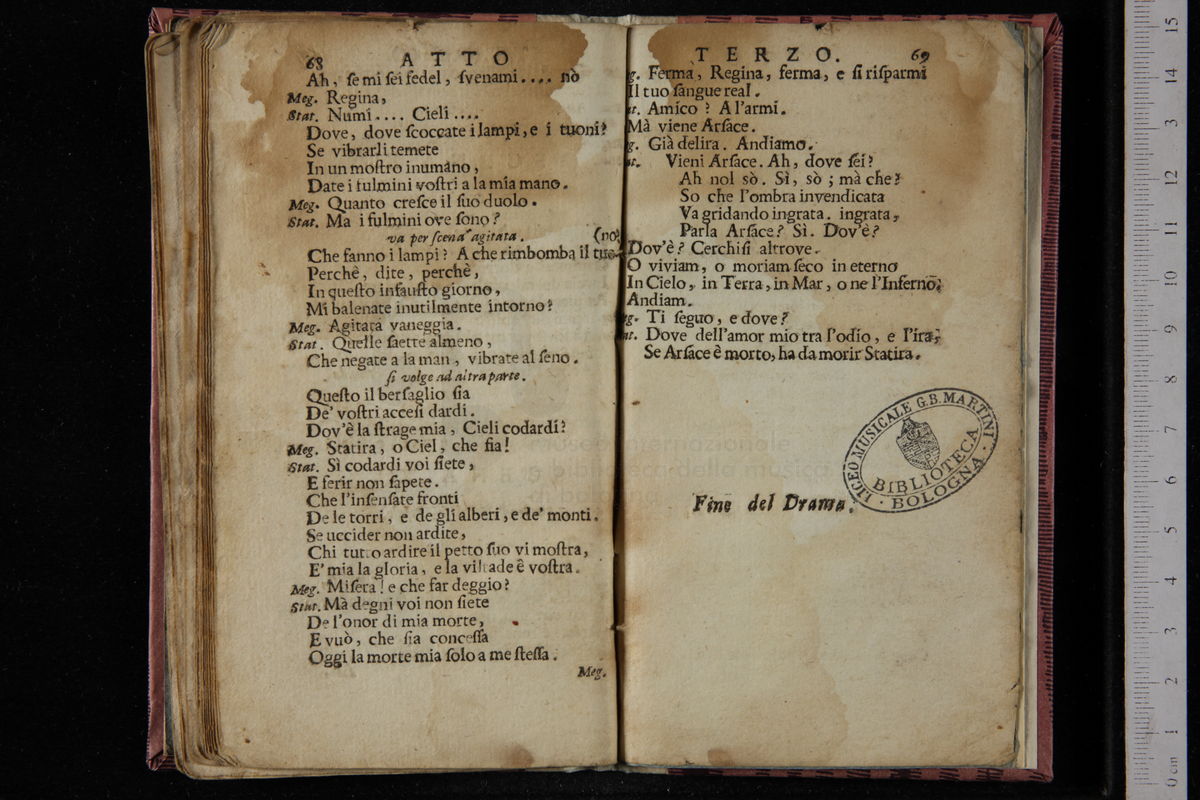 68 ATTO
Ah, ſe mi ſei fedel, ſvenami.... nò
Meg. Regina,
Stat. Numi.... Cieli....
Dove, dove ſcoccate i lampi, e i tuoni?
Se vibrarli temete
In un moſtro inumano,
Date i fulmini voſtri a la mia mano.
Meg. Quanto creſce il ſuo duolo.
Stat. Ma i fulmini ove ſono?
va per ſcena agitata. (no?
Che fanno i lampi? A che rimbomba il tuo-
Perchè, dite, perchè,
In queſto infauſto giorno,
Mi balenate inutilmente intorno?
Meg. Agitata vaneggia.
Stat. Quelle ſaette almeno,
Che negate a la man, vibrate al ſeno.
ſi volge ad altra parte.
Queſto il berſaglio ſia
De' voſtri acceſi dardi.
Dov'è la ſtrage mia, Cieli codardi?
Meg. Statira, o Ciel, che ſia!
Stat. Sì codardi voi ſiete,
E ferir non ſapete.
Che l'inſenſate fronti
De le torri, e de gli alberi, e de' monti.
Se uccider non ardite,
Chi tutto ardire il petto ſuo vi moſtra,
E' mia la gloria, e la viltade è voſtra.
Meg. Miſera! e che far deggio?
Stat. Mà degni voi non ſiete
De l'onor di mia morte,
E vuò, che ſia conceſſa
Oggi la morte mia ſolo a me ſteſſa.
Meg.
TERZO. 69
g. Ferma, Regina, ferma, e ſi riſparmi
Il tuo ſangue real.
at. Amico? A l'armi.
Mà viene Arſace.
g. Già delira. Andiamo.
at. Vieni Arſace. Ah, dove ſei?
Ah nol sò. Sì, sò; mà che?
So che l'ombra invendicata
Va gridando ingrata. ingrata,
Parla Arſace? Sì. Dov'è?
Dov'è? Cerchiſi altrove.
O viviam, o moriam ſeco in eterno
In Cielo, in Terra, in Mar, o ne l'Inferno,
Andiam.
g. Ti ſeguo, e dove?
at. Dove dell'amor mio tra l'odio, e l'ira,
Se Arſace è morto, ha da morir Statira.
Fine del Drama.
LICEO MUSICALE G.B. MARTINI
BIBLIOTECA
BOLOGNA
museo internazionale
e biblioteca della musica
di bologna
0 cm 1 2 3 4 5 6 7 8 9 10 11 12 13 14 15